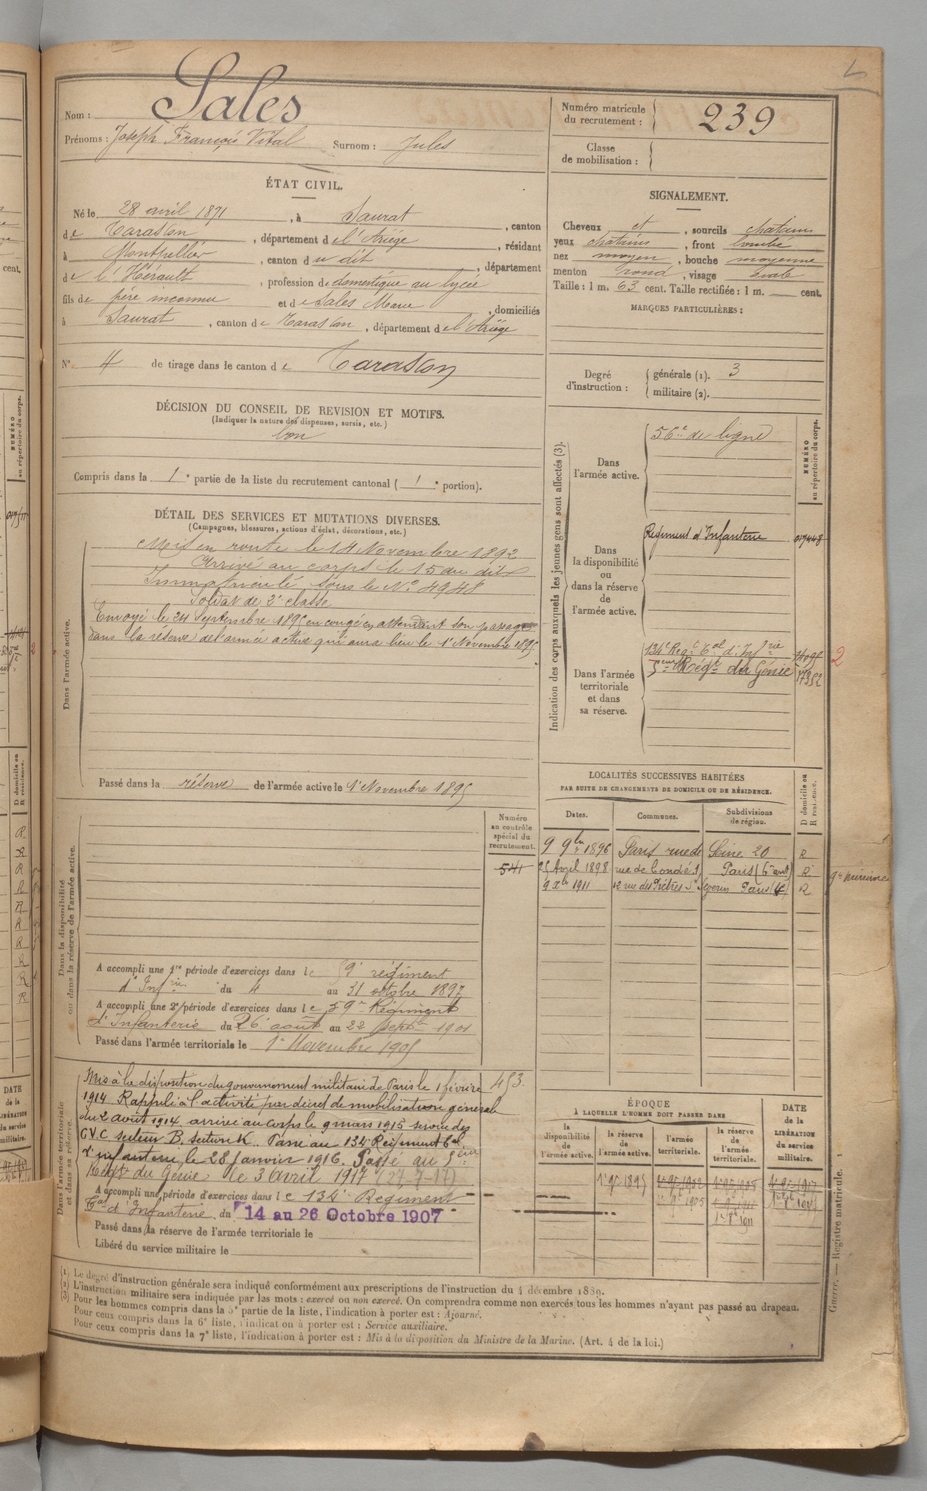 Nom : Sales
Prénoms : Joseph François Vital Surnom : Jules
Numéro matricule du recrutement : 239
Classe de mobilisation :
ÉTAT CIVIL.
Né le 28 avril 1871, à Saurat, canton
de Tarascon, département de l'Ariège, résidant
à Montpellier, canton du dit, département
de l'Hérault, profession de domestique au lycée
fils de père inconnu et de Sales Marie, domiciliés
à Saurat, canton de Tarascon, département de l'Ariège
N° 4 de tirage dans le canton de Tarascon
SIGNALEMENT.
Cheveux et, sourcils chatains
yeux chatains, front bombé
nez moyen, bouche moyenne
menton rond, visage ovale
Taille : 1 m. 63 cent. Taille rectifiée : 1 m. cent.
MARQUES PARTICULIÈRES :
Degré d'instruction : générale (1). 3
militaire (2).
DÉCISION DU CONSEIL DE REVISION ET MOTIFS.
(Indiquer la nature des dispenses, sursis, etc.)
bon
Compris dans la 1e partie de la liste du recrutement cantonal ( 1e portion).
DÉTAIL DES SERVICES ET MUTATIONS DIVERSES.
(Campagnes, blessures, actions d'éclat, décorations, etc.)
Dans l'armée active.
Mis en route le 14 Novembre 1892
Arrivé au corps le 15 du dit
Immatriculé sous le N° 4948
Soldat de 2e classe
Envoyé le 24 Septembre 1895 en congé en attendant son passage
dans la réserve de l'armée active qui aura lieu le 1er Novembre 1895
Passé dans la réserve de l'armée active le 1er Novembre 1895
Indication des corps auxquels les jeunes gens sont affectés (3).
NUMÉRO au répertoire du corps.
Dans l'armée active.
56e de ligne
Dans la disponibilité ou dans la réserve de l'armée active.
Régiment d'Infanterie
Dans l'armée territoriale et dans sa réserve.
134e Régt Eal d'Infrie
5ème Régt du Génie
2
LOCALITÉS SUCCESSIVES HABITÉES
PAR SUITE DE CHANGEMENTS DE DOMICILE OU DE RÉSIDENCE.
Dates. Communes. Subdivisions de région. D domicile ou R résidence.
9 9bre 1896 Paris rue de Seine 20 R
25 Avril 1898 rue de Condé Paris R
9 Xbre 1911 12 rue des Prêtres St Séverin Paris R
Numéro au contrôle spécial du recrutement.
541
Dans la disponibilité ou dans la réserve de l'armée active.
A accompli une 1re période d'exercices dans le 59e régiment
d'Infrie du 4 au 31 octobre 1897
A accompli une 2e période d'exercices dans le 59e Régiment
d'Infanterie du 26 août au 22 Septbre 1901
Passé dans l'armée territoriale le 1er Novembre 1905
Dans l'armée territoriale et dans sa réserve.
453.
Mis à la disposition du gouvernement militaire de Paris le 1 février
1914. Rappelé à l'activité par décret de mobilisation générale
du 2 août 1914. arrivé au corps le 9 mars 1915 service des
G.V.C. secteur B. section K. Passé au 134 Régiment Eal
d'infanterie le 28 Janvier 1916. Passé au 5ème
Régt du Génie le 3 avril 1917 (27-7-17)
A accompli une période d'exercices dans le 134e Régiment
Eal d'Infanterie du 14 au 26 Octobre 1907
Passé dans la réserve de l'armée territoriale le
Libéré du service militaire le
ÉPOQUE
À LAQUELLE L'HOMME DOIT PASSER DANS
la disponibilité de l'armée active. la réserve de l'armée active. l'armée territoriale. la réserve de l'armée territoriale.
DATE de la LIBÉRATION du service militaire.
1er 9bre 1895
(1) Le degré d'instruction générale sera indiqué conformément aux prescriptions de l'instruction du 4 décembre 1889.
(2) L'instruction militaire sera indiquée par les mots : exercé ou non exercé. On comprendra comme non exercés tous les hommes n'ayant pas passé au drapeau.
(3) Pour les hommes compris dans la 5e partie de la liste, l'indication à porter est : Ajourné.
Pour ceux compris dans la 6e liste, l'indication à porter est : Service auxiliaire.
Pour ceux compris dans la 7e liste, l'indication à porter est : Mis à la disposition du Ministre de la Marine. (Art. 4 de la loi.)
Guerre. — Registre matricule.